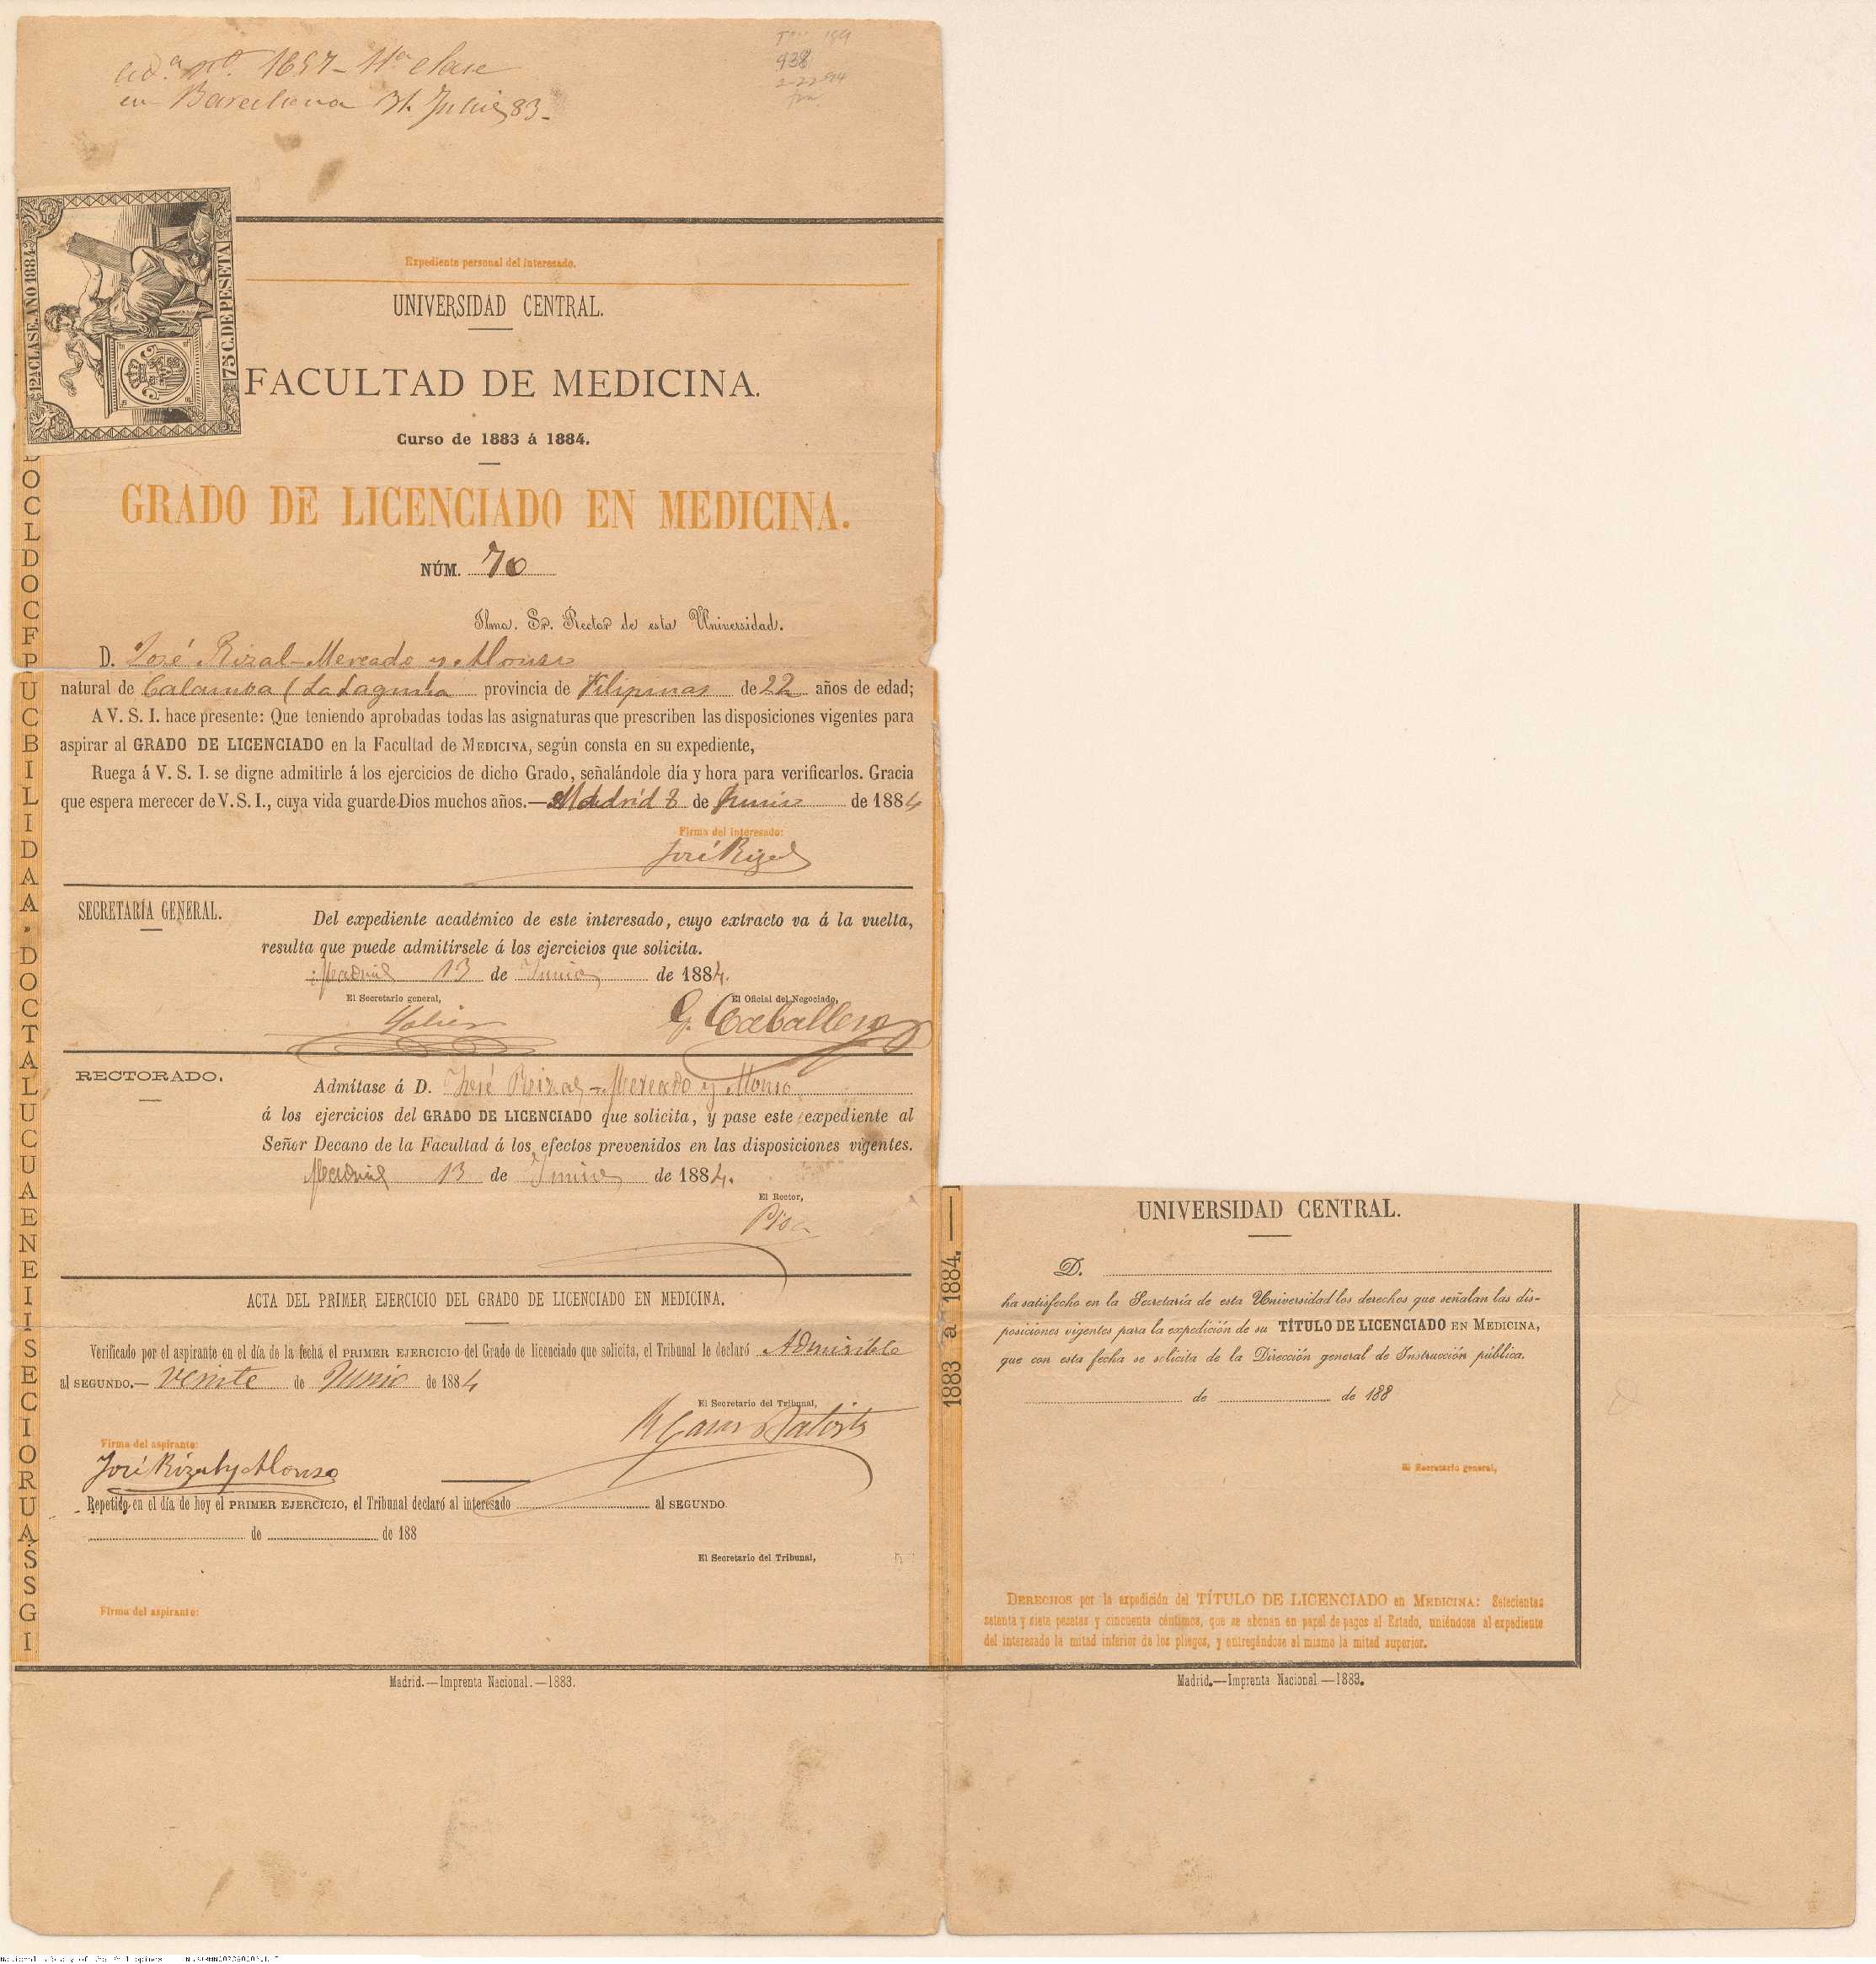 nº. 1657 - 11ª clase
en Barcelona 31. Julio 83.
938
2-22
12ª CLASE. AÑO 1884
75 C. DE PESETA
Expediente personal del interesado.
UNIVERSIDAD CENTRAL.
FACULTAD DE MEDICINA.
Curso de 1883 á 1884.
GRADO DE LICENCIADO EN MEDICINA.
NÚM. 70
Ilmo. Sr. Rector de esta Universidad.
D. José Rizal-Mercado y Alonso
natural de Calamba (La Laguna provincia de Filipinas de 22 años de edad;
A V. S. I. hace presente: Que teniendo aprobadas todas las asignaturas que prescriben las disposiciones vigentes para
aspirar al GRADO DE LICENCIADO en la Facultad de MEDICINA, según consta en su expediente,
Ruega á V. S. I. se digne admitirle á los ejercicios de dicho Grado, señalándole día y hora para verificarlos. Gracia
que espera merecer de V. S. I., cuya vida guarde Dios muchos años.—Madrid 8 de Junio de 1884
Firma del interesado:
José Rizal
SECRETARÍA GENERAL.
Del expediente académico de este interesado, cuyo extracto va á la vuelta,
resulta que puede admitírsele á los ejercicios que solicita.
Madrid 13 de Junio de 1884.
El Secretario general,
El Oficial del Negociado,
G. Caballero
RECTORADO.
Admítase á D. José Rizal-Mercado y Alonso
á los ejercicios del GRADO DE LICENCIADO que solicita, y pase este expediente al
Señor Decano de la Facultad á los efectos prevenidos en las disposiciones vigentes.
Madrid 13 de Junio de 1884.
El Rector,
ACTA DEL PRIMER EJERCICIO DEL GRADO DE LICENCIADO EN MEDICINA.
Verificado por el aspirante en el día de la fecha el PRIMER EJERCICIO del Grado de licenciado que solicita, el Tribunal le declaró Admisible
al SEGUNDO.— Veinte de Junio de 1884
El Secretario del Tribunal,
Firma del aspirante:
José Rizal y Alonso
Repetido en el día de hoy el PRIMER EJERCICIO, el Tribunal declaró al interesado al SEGUNDO
de de 188
El Secretario del Tribunal,
Firma del aspirante:
Madrid.—Imprenta Nacional.—1883.
OCLDOCFPUCBILIDAA * DOCTALUCUAENEIISECIORUASSGI
1883 a 1884.
UNIVERSIDAD CENTRAL.
D.
ha satisfecho en la Secretaría de esta Universidad los derechos que señalan las dis-
posiciones vigentes para la expedición de su TÍTULO DE LICENCIADO EN MEDICINA,
que con esta fecha se solicita de la Dirección general de Instrucción pública.
de de 188
El Secretario general,
DERECHOS por la expedición del TÍTULO DE LICENCIADO en MEDICINA: Setecientas
setenta y siete pesetas y cincuenta céntimos, que se abonan en papel de pagos al Estado, uniéndose al expediente
del interesado la mitad inferior de los pliegos, y entregándose al mismo la mitad superior.
Madrid.—Imprenta Nacional.—1883.